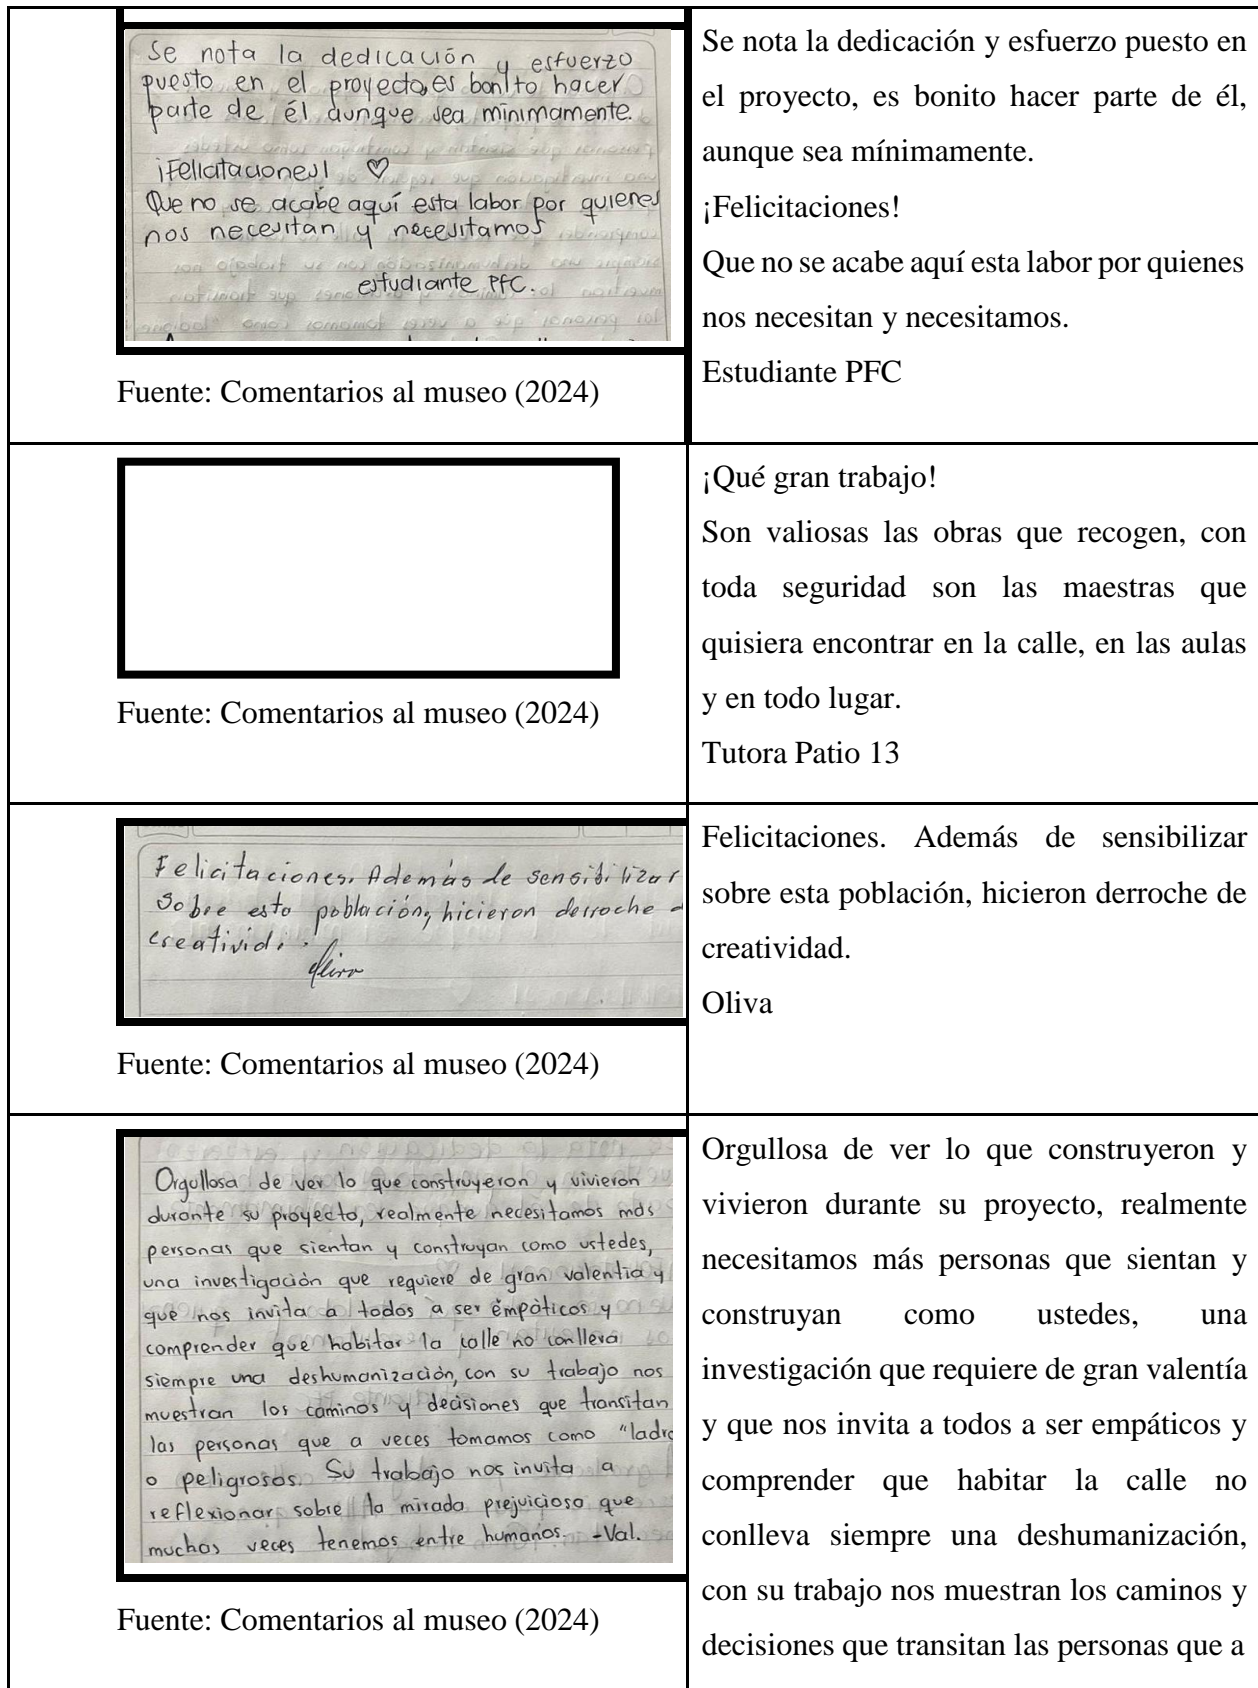 Se nota la dedicación y esfuerzo
puesto en el proyecto, es bonito hacer
parte de él aunque sea mínimamente.
¡Felicitaciones! ♡
Que no se acabe aquí esta labor por quienes
nos necesitan y necesitamos
estudiante PFC.
Fuente: Comentarios al museo (2024)
Se nota la dedicación y esfuerzo puesto en
el proyecto, es bonito hacer parte de él,
aunque sea mínimamente.
¡Felicitaciones!
Que no se acabe aquí esta labor por quienes
nos necesitan y necesitamos.
Estudiante PFC
Fuente: Comentarios al museo (2024)
¡Qué gran trabajo!
Son valiosas las obras que recogen, con
toda seguridad son las maestras que
quisiera encontrar en la calle, en las aulas
y en todo lugar.
Tutora Patio 13
Felicitaciones. Además de sensibilizar
Sobre esta población, hicieron derroche d
creativid
Fuente: Comentarios al museo (2024)
Felicitaciones. Además de sensibilizar
sobre esta población, hicieron derroche de
creatividad.
Oliva
Orgullosa de ver lo que construyeron y vivieron
durante su proyecto, realmente necesitamos más
personas que sientan y construyan como ustedes,
una investigación que requiere de gran valentía y
que nos invita a todos a ser émpáticos y
comprender que habitar la calle no conlleva
siempre una deshumanización, con su trabajo nos
muestran los caminos y decisiones que transitan
las personas que a veces tomamos como "ladro
o peligrosos. Su trabajo nos invita a
reflexionar sobre la mirada prejuiciosa que
muchas veces tenemos entre humanos. -Val.
Fuente: Comentarios al museo (2024)
Orgullosa de ver lo que construyeron y
vivieron durante su proyecto, realmente
necesitamos más personas que sientan y
construyan como ustedes, una
investigación que requiere de gran valentía
y que nos invita a todos a ser empáticos y
comprender que habitar la calle no
conlleva siempre una deshumanización,
con su trabajo nos muestran los caminos y
decisiones que transitan las personas que a